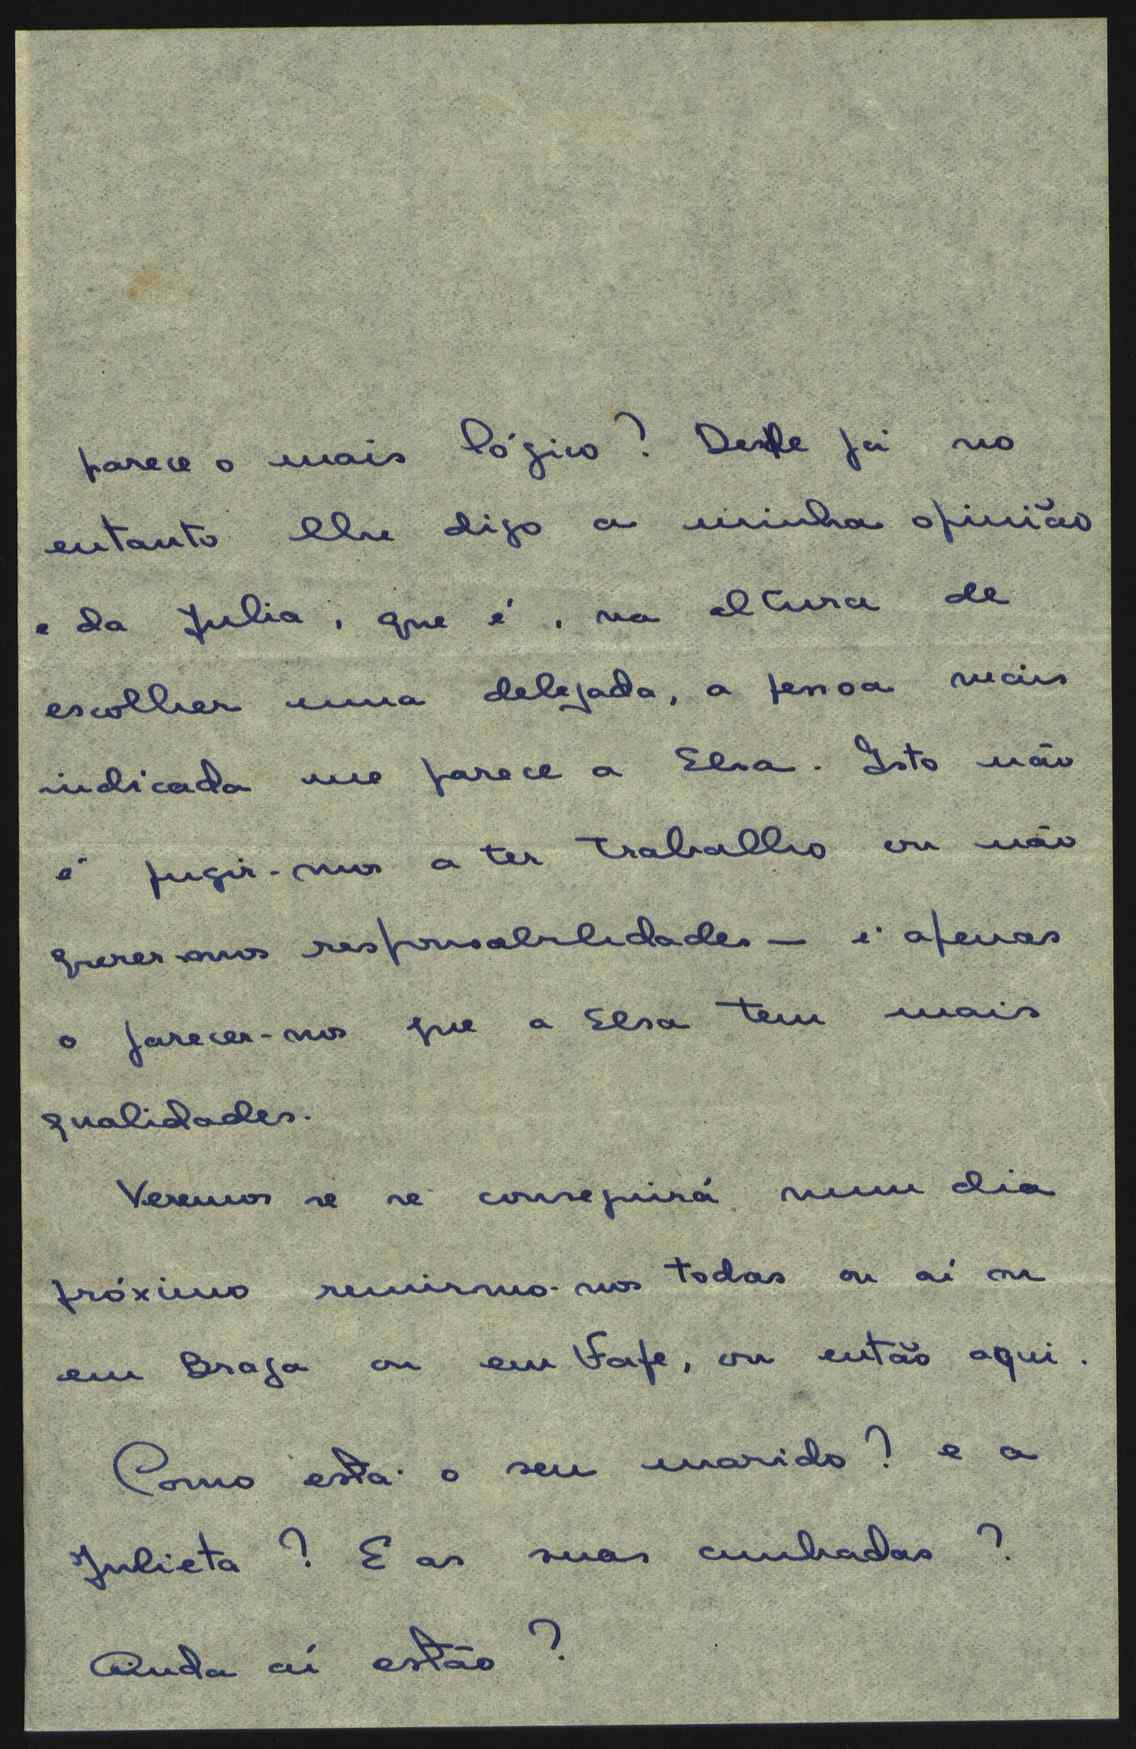 parece o mais lógico? Desde já no
entanto lhe digo a minha opinião
e da Julia, que é, na altura de
escolher uma delegada, a pessoa mais
indicada me parece a Elsa. Isto não
é fugir-mos a ter trabalho ou não
querer-mos responsabilidades — é apenas
o parecer-nos que a Elsa tem mais
qualidades.
Veremos se se conseguirá num dia
próximo reunirmo-nos todas ou aí ou
em Braga ou em Fafe, ou então aqui.
Como está o seu marido? e a
Julieta? E as suas cunhadas?
Ainda aí estão?